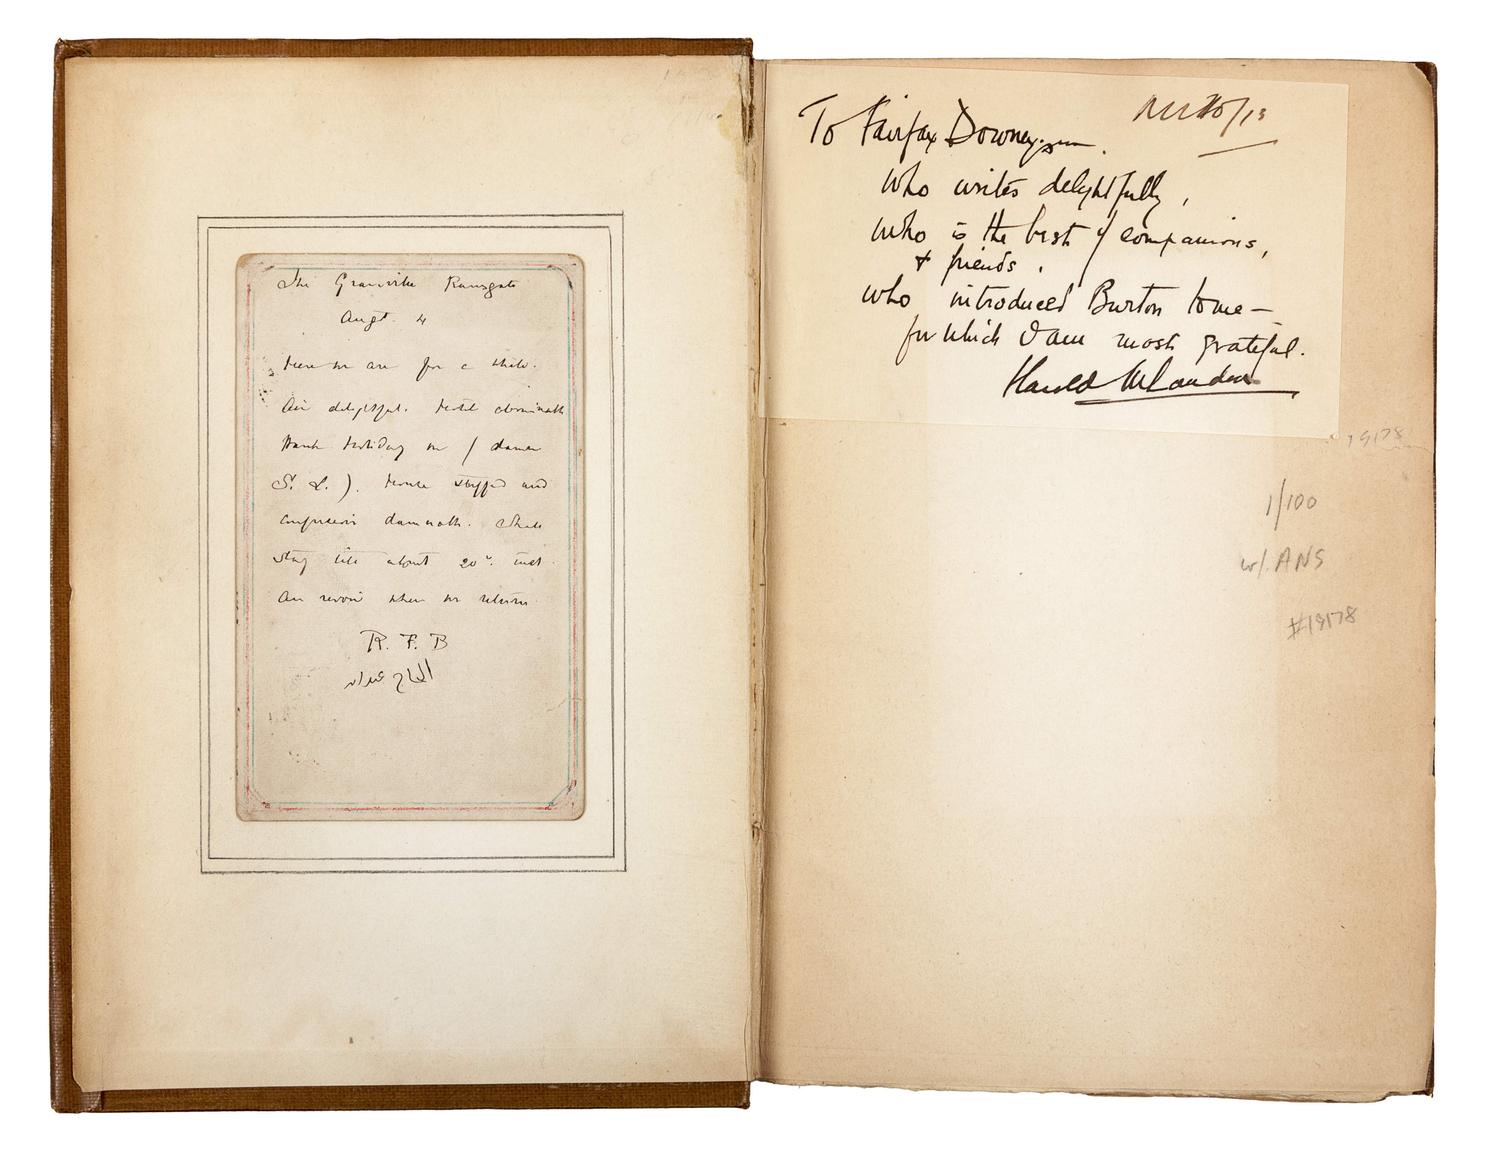 The Granville Ramsgate
Augt. 4
Here we are for a while.
Air delightful. Hotel abominable
Bank Holiday on (damn
S. L.). House stuffed and
confusion damnable. Shall
stay till about 20th. inst.
Au revoir when we return.
R. F. B
الحاج عبدالله
To Fairfax Downey
who writes delightfully,
who is the best of companions,
& friends,
who introduced Burton to me —
for which I am most grateful.
Harold
19178
1/100
w/. ANS
#19178